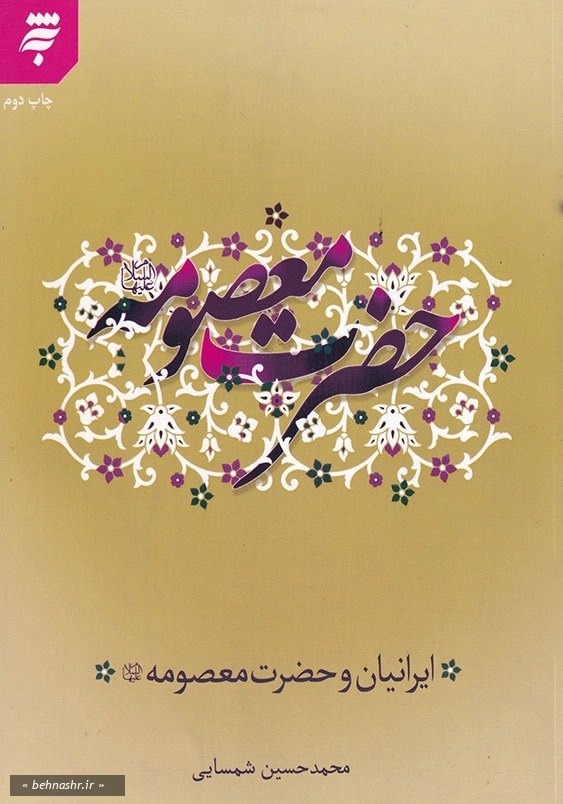 چاپ دوم
حضرت معصومه علیها السلام
ایرانیان و حضرت معصومه علیها السلام
محمدحسین شمسایی
« behnashr.ir »